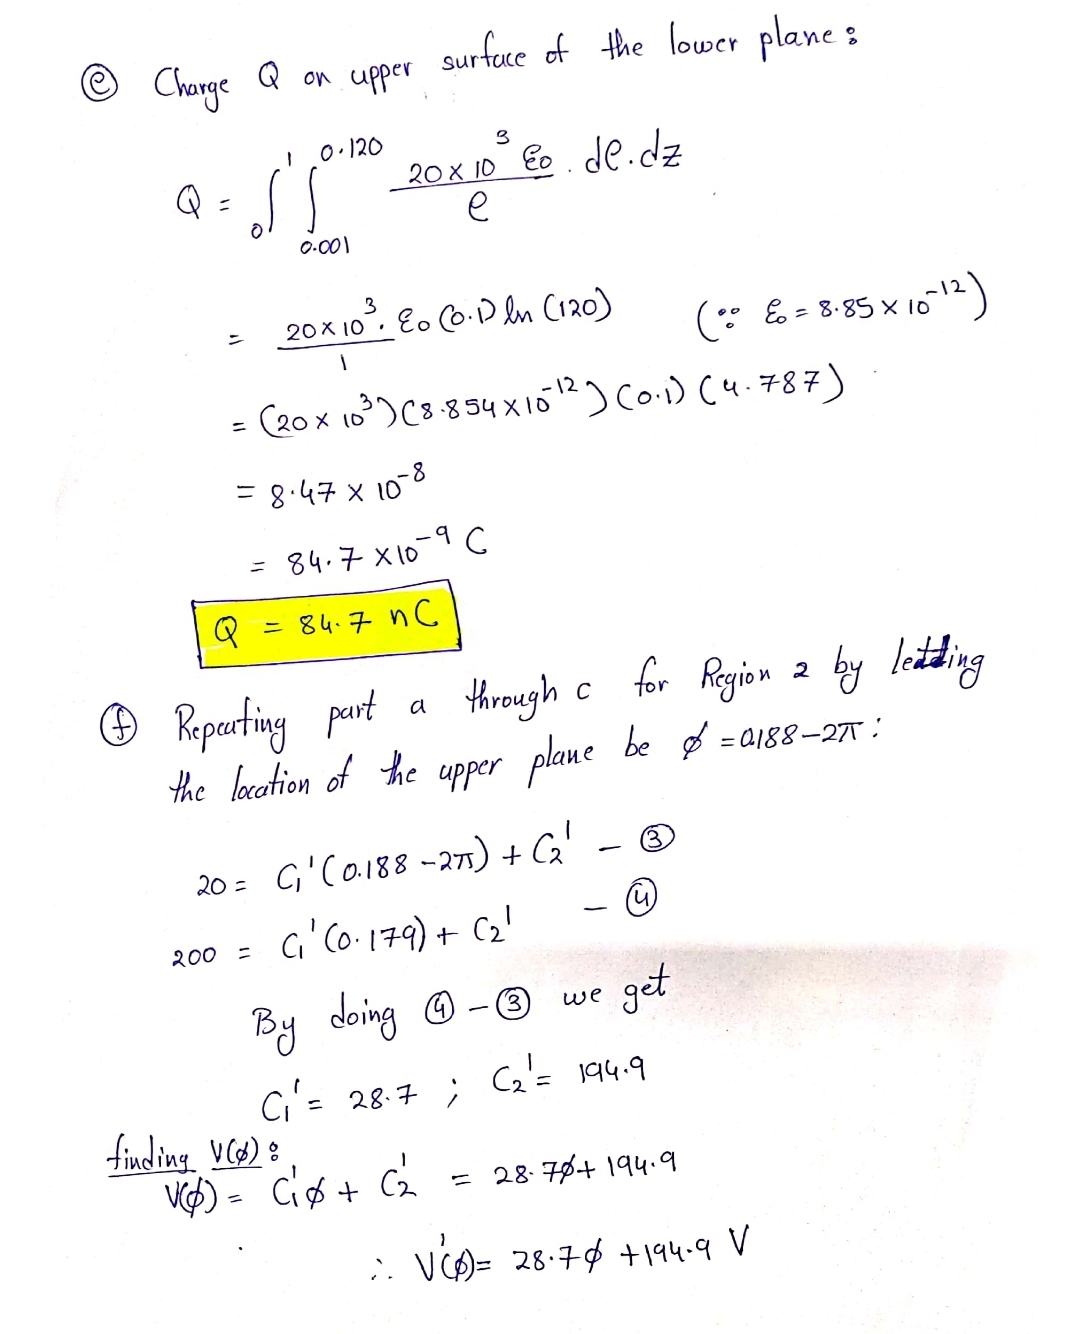 ⓔ Charge Q on upper surface of the lower plane :
Q = ∫₀¹ ∫₀.₀₀₁^0.120 20 x 10³ ε₀ / ρ . dρ.dz
= 20x10³ . ε₀ (0.1) ln (120) / 1 (∵ ε₀ = 8.85 x 10⁻¹²)
= (20 x 10³) (8.854 x 10⁻¹²) (0.1) (4.787)
= 8.47 x 10⁻⁸
= 84.7 x10⁻⁹ C
Q = 84.7 nC
ⓕ Repeating part a through c for Region 2 by letting
the location of the upper plane be ϕ = 0.188 – 2π :
20 = C₁' (0.188 – 2π) + C₂' – ③
200 = C₁' (0.179) + C₂' – ④
By doing ④ – ③ we get
C₁' = 28.7 ; C₂' = 194.9
finding V(ϕ) :
V(ϕ) = C₁'ϕ + C₂' = 28.7ϕ + 194.9
∴ V'(ϕ) = 28.7ϕ + 194.9 V